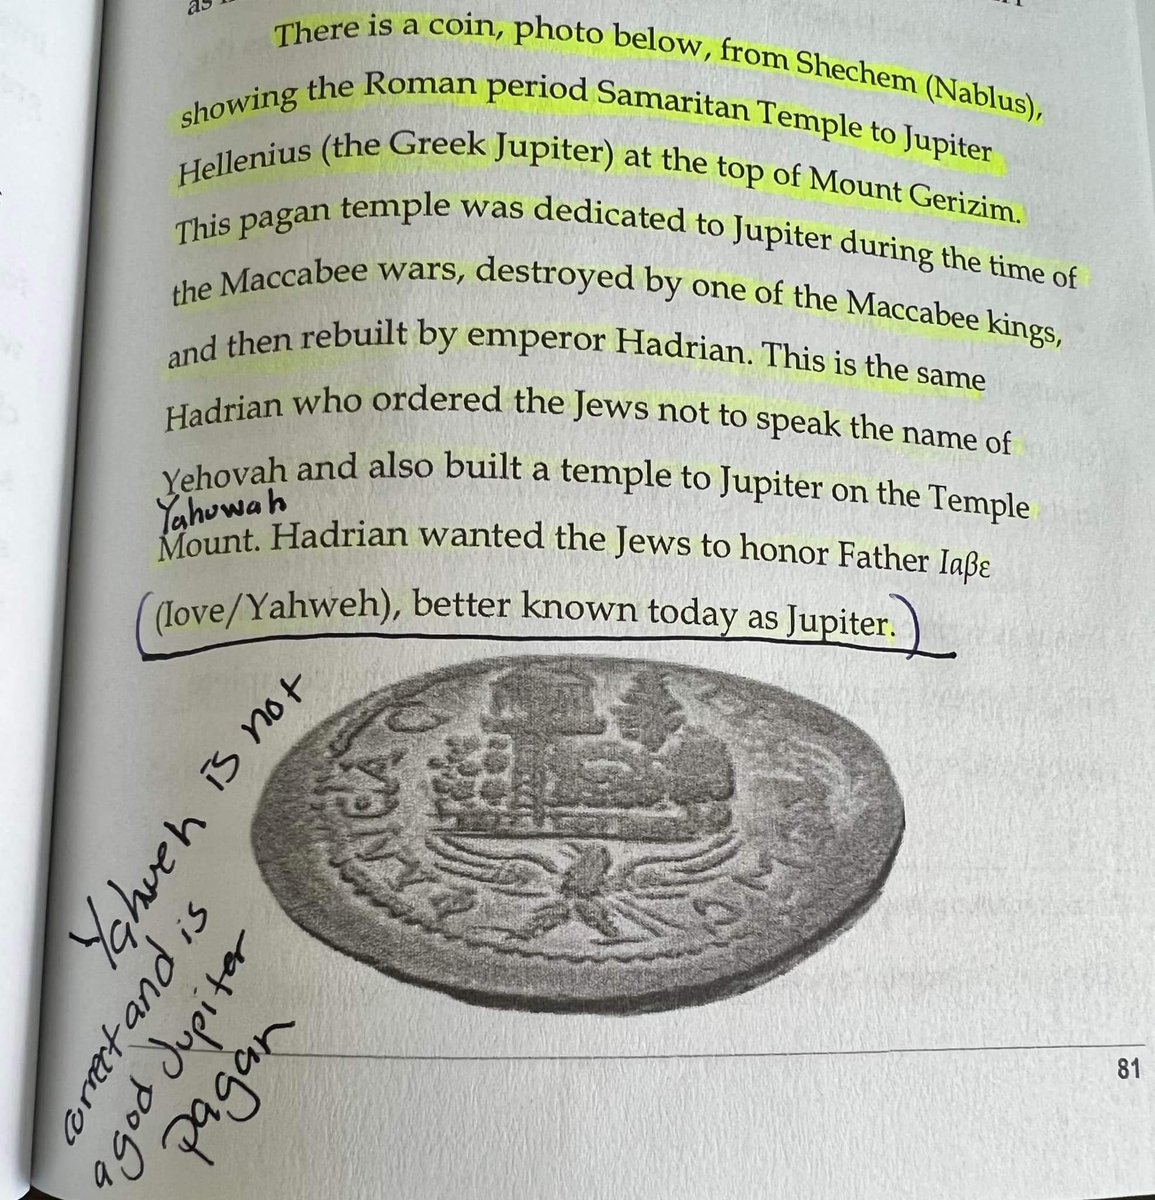 There is a coin, photo below, from Shechem (Nablus),
showing the Roman period Samaritan Temple to Jupiter
Hellenius (the Greek Jupiter) at the top of Mount Gerizim.
This pagan temple was dedicated to Jupiter during the time of
the Maccabee wars, destroyed by one of the Maccabee kings,
and then rebuilt by emperor Hadrian. This is the same
Hadrian who ordered the Jews not to speak the name of
Yehovah and also built a temple to Jupiter on the Temple
Yahuwah
Mount. Hadrian wanted the Jews to honor Father Ιαβε
(Iove/Yahweh), better known today as Jupiter.
Yahweh is not
correct and is
a god Jupiter
pagan
81